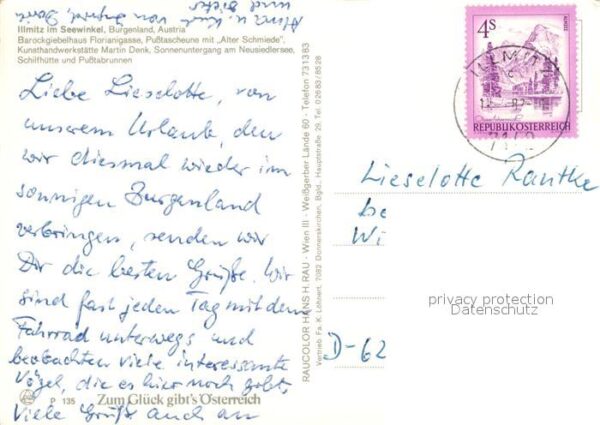 und Dieter
Illmitz im Seewinkel, Burgenland, Austria
Barockgiebelhaus Florianigasse, Pußtascheune mit „Alter Schmiede",
Kunsthandwerkstätte Martin Denk, Sonnenuntergang am Neusiedlersee,
Schilfhütte und Pußtabrunnen
Liebe Lieselotte, von
unserem Urlaub, den
wir diesmal wieder im
sonnigen Burgenland
verbringen, senden wir
Dir die besten Grüße. Wir
sind fast jeden Tag mit dem
Fahrrad unterwegs und
beobachten viele interessante
Vögel, die es hier noch gibt.
Viele Grüße auch an
P 135 Zum Glück gibt's Österreich
RAUCOLOR HANS H. RAU · Wien III · Weißgerber Lände 60 · Telefon 731383
Vertrieb Fa. K. Lohnert, 7082 Donnerskirchen, Bgld., Hauptstraße 29, Tel. 02683/8528
4S
ALMSEE
REPUBLIK ÖSTERREICH
ILLMITZ
Lieselotte Rantke
be
Wi
D-62
privacy protection
Datenschutz